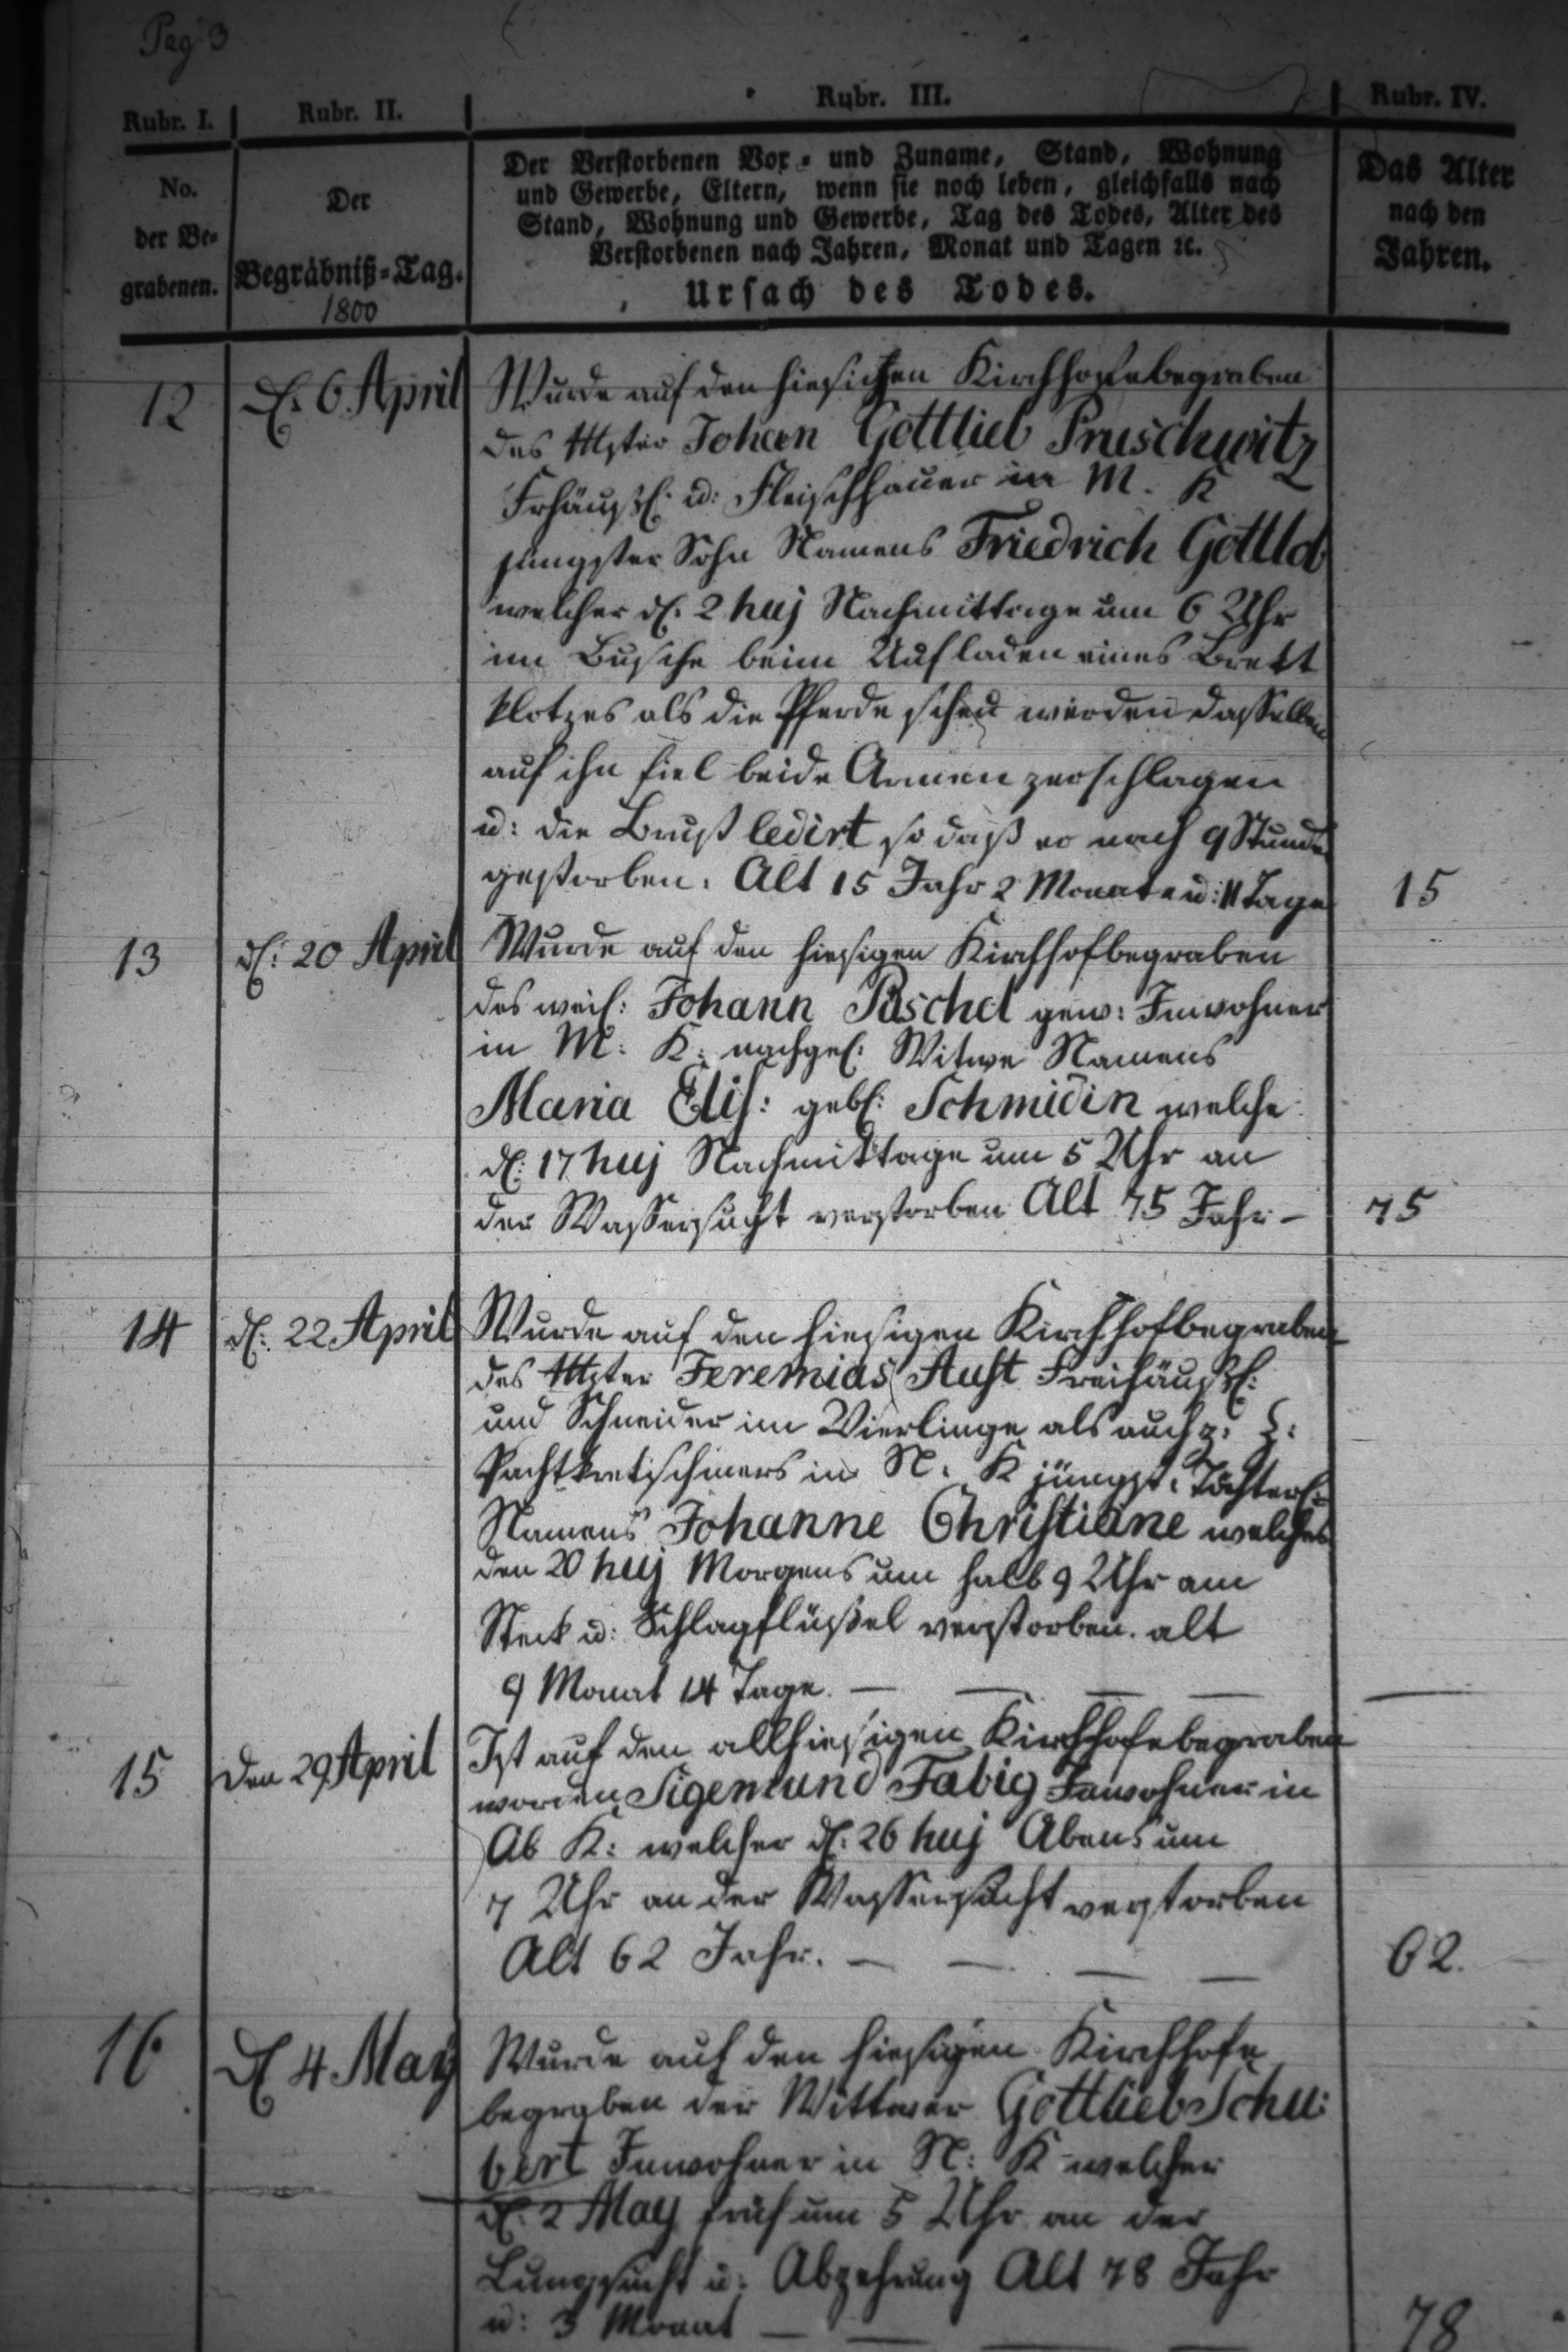 Pag 3
Rubr. I. Rubr. II. Rubr. III. Rubr. IV.
No.
der Be-
grabenen.
Der
Begräbniß-Tag.
1800
Der Verstorbenen Vor- und Zuname, Stand, Wohnung
und Gewerbe, Eltern, wenn sie noch leben, gleichfalls nach
Stand, Wohnung und Gewerbe, Tag des Todes, Alter des
Verstorbenen nach Jahren, Monat und Tagen ꝛc.
Ursach des Todes.
Das Alter
nach den
Jahren.
12 d. 6 April Wurde auf den hiesichen Kirchhofe begraben
des Mster Johan Gottlieb Pruschwitz
Frhäußl: u: Fleischhauer in M. K
jüngster Sohn Namens Friedrich Gottlob
welcher d: 2 huj Nachmittage um 6 Uhr
im Busche beim Aufladen eines Brett
klotzes als die Pferde scheu wurden dasselbe
auf ihn fiel beide Armen zerschlagen
u: die Brust ledirt so daß er nach 9 Stunde
gestorben. Alt 15 Jahr 2 Monate u: 11 Tage 15
13 d: 20 April Wurde auf den hiesigen Kirchhof begraben
des weil: Johann Püschel gew: Inwohner
in M: K: nachgel: Witwe Namens
Maria Elis: geb: Schmidin welche
d: 17 huj Nachmittage um 5 Uhr an
der Wassersucht verstorben Alt 75 Jahr – 75
14 d: 22 April Wurde auf den hiesigen Kirchhof begraben
des Mster Jeremias Aust Freihäußl:
und Schneider im Vierlinge als auch z: Z:
Pachtkretschmers in N. K jüngst. Töchterl:
Namens Johanne Christiane welches
den 20 huj Morgens um halb 9 Uhr am
Steck u: Schlagflüßel verstorben. alt
9 Monat 14 Tage. — — — —
15 den 29 April Ist auf den allhiesigen Kirchhofe begraben
worden Sigemund Fabig Inwohner in
Ab K: welcher d: 26 huj Abens um
7 Uhr an der Wassersucht verstorben
Alt 62 Jahr. — — — — 62.
16 d 4 May Wurde auf den hiesigen Kirchhofe
begraben der Wittwer Gottlieb Schu:
bert Inwohner in N: K welcher
d: 2 May früh um 5 Uhr an der
Lungsucht u: Abzehrung Alt 78 Jahr
u: 3 Monat — — — — 78